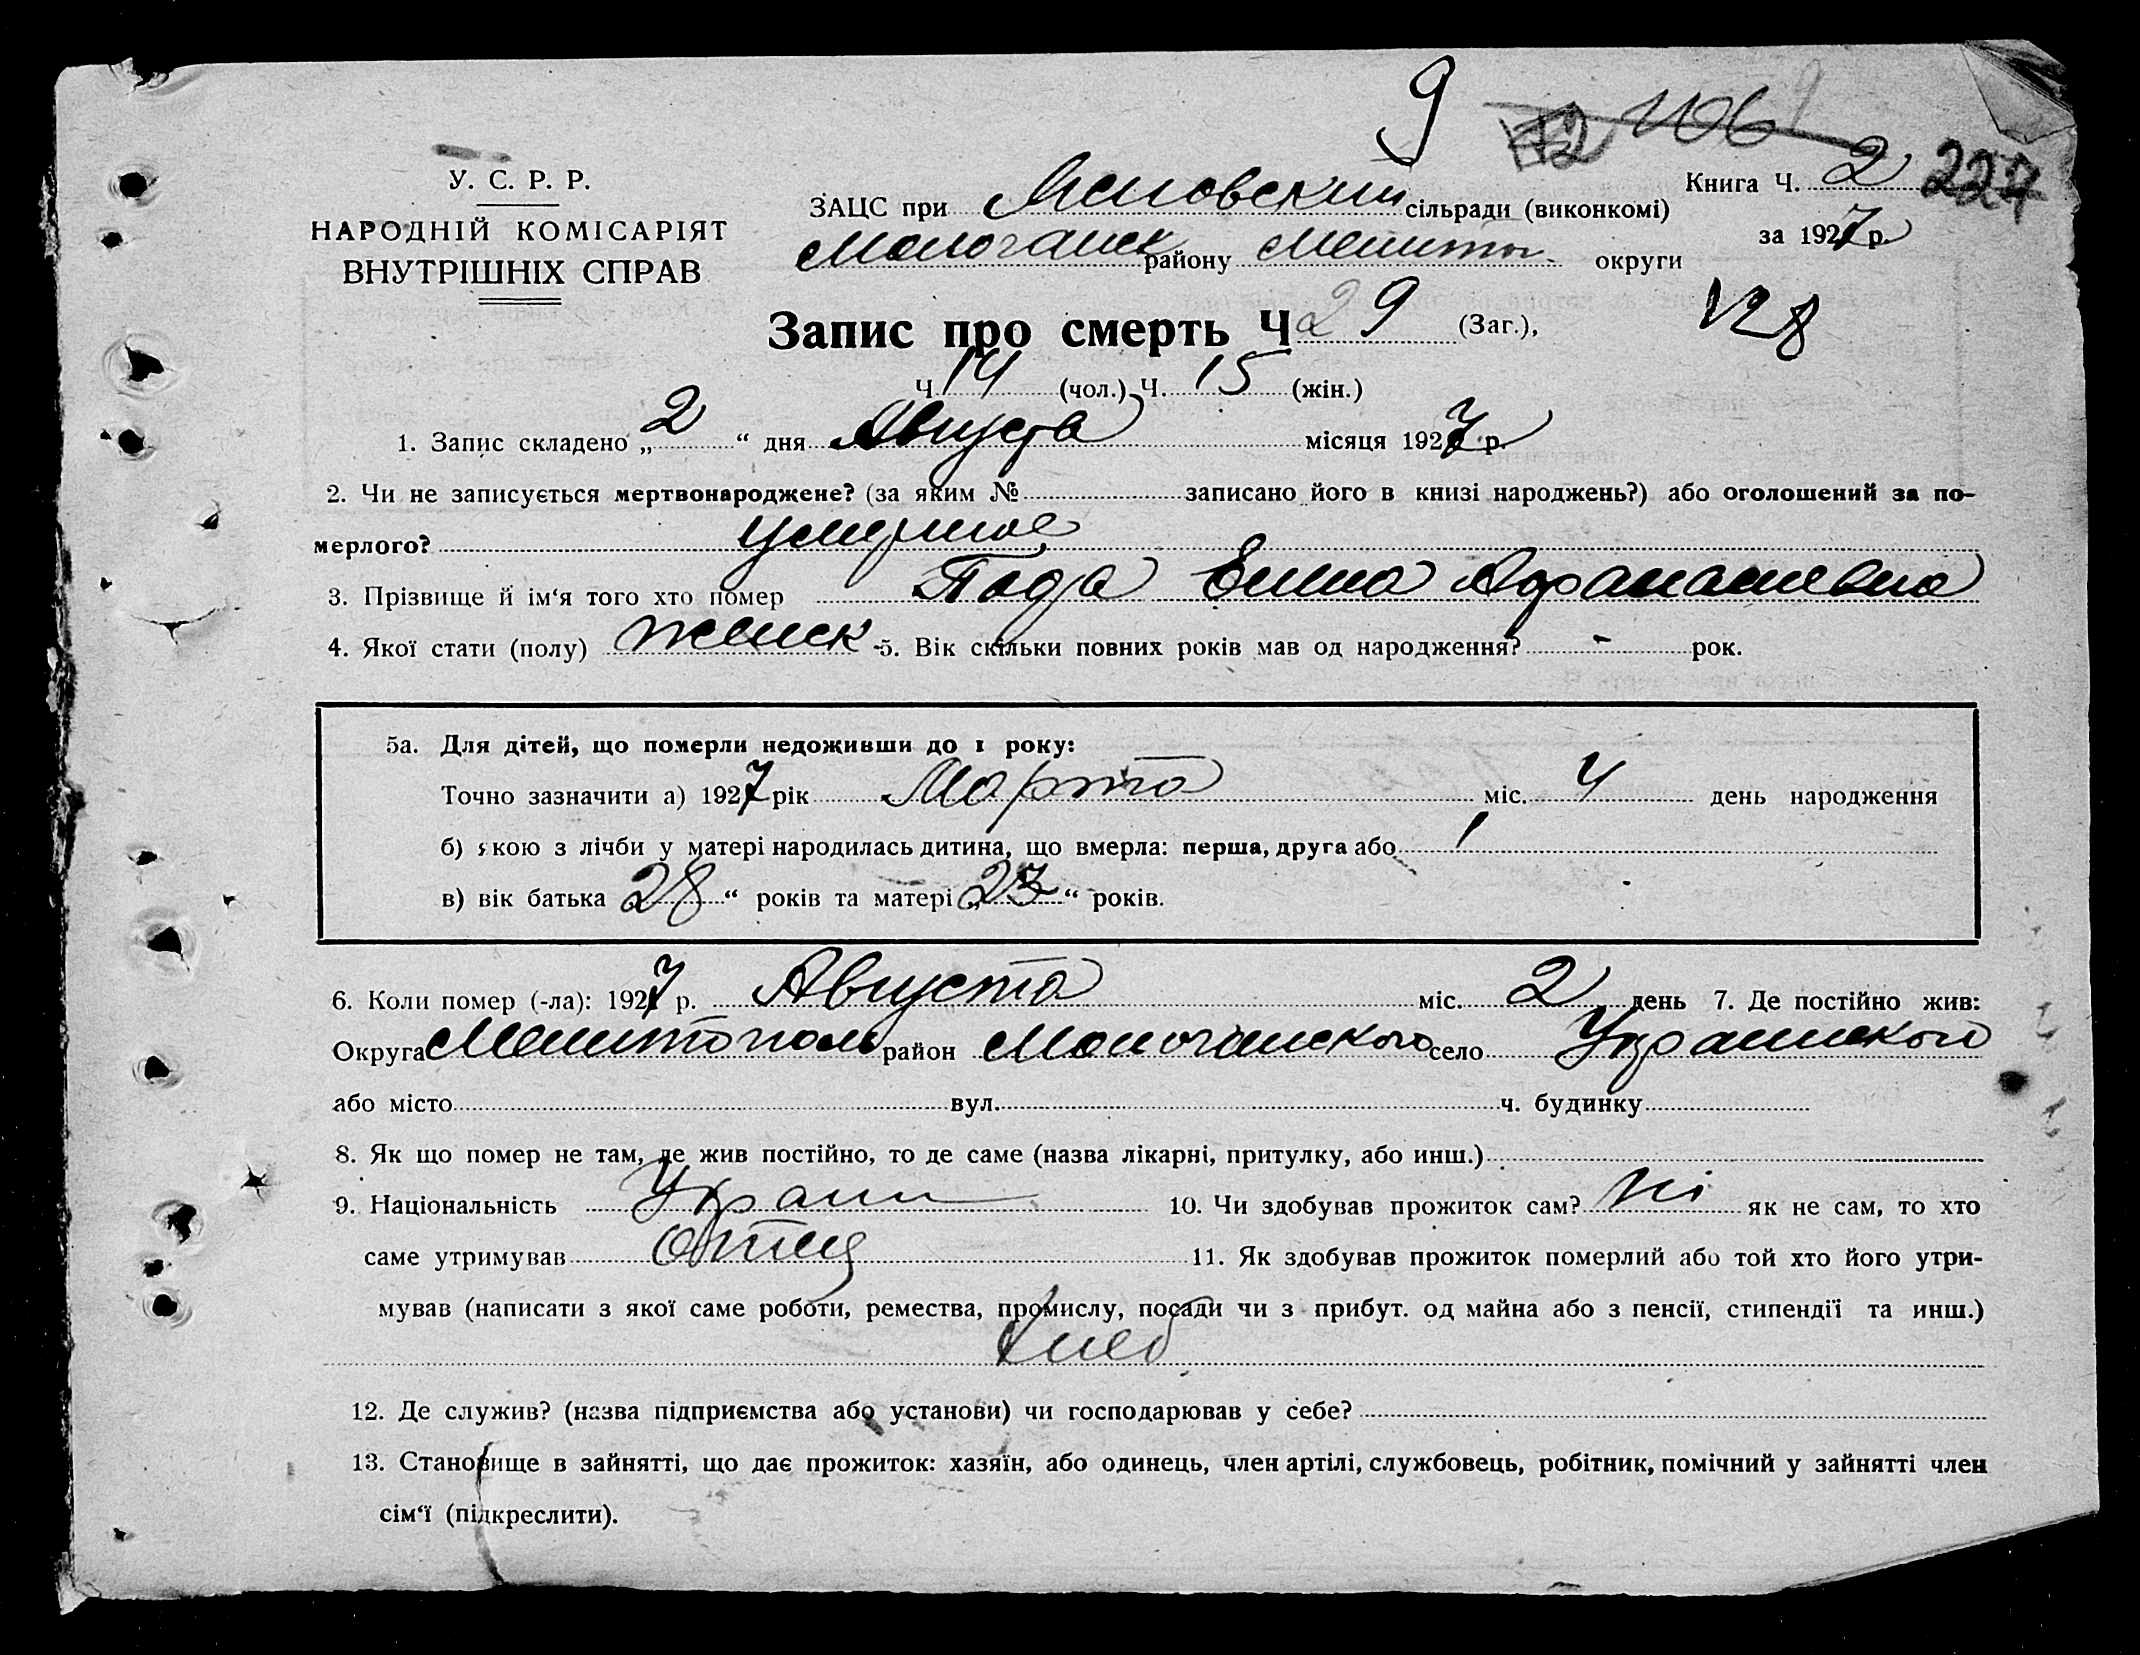 9
106
2 227
У. С. Р. Р.
НАРОДНІЙ КОМІСАРІЯТ
ВНУТРІШНІХ СПРАВ
Книга Ч. 2
за 1927 р.
ЗАЦС при сільради (виконкомі)
Молочанск району Мелитоп. округи
Запис про смерть Ч 29 (Заг.), № 8
Ч 14 (чол.) Ч. 15 (жін.)
1. Запис складено „2“ дня Августа місяця 1927 р.
2. Чи не записується мертвонароджене? (за яким № записано його в книзі народжень?) або оголошений за по-
мерлого? умершое
3. Прізвище й ім‘я того хто помер Пода Елена Афанасиевна
4. Якої стати (полу) женск 5. Вік скільки повних років мав од народження? - рок.
5а. Для дітей, що померли недоживши до 1 року:
Точно зазначити а) 1927 рік Марта міс. 4 день народження
б) якою з лічби у матері народилась дитина, що вмерла: перша, друга або 1
в) вік батька 28“ років та матері „23“ років.
6. Коли помер (-ла): 1927 р. Августа міс. 2 день 7. Де постійно жив:
Округа Мелитополь район Молочанского село Украинского
або місто вул. ч. будинку
8. Як що помер не там, де жив постійно, то де саме (назва лікарні, притулку, або инш.)
9. Національність Украин 10. Чи здобував прожиток сам? Ні як не сам, то хто
саме утримував отец 11. Як здобував прожиток померлий або той хто його утри-
мував (написати з якої саме роботи, ремества, промислу, посади чи з прибут. од майна або з пенсії, стипендії та инш.)
Хлеб
12. Де служив? (назва підприємства або установи) чи господарював у себе?
13. Становище в зайнятті, що дає прожиток: хазяїн, або одинець, член артілі, службовець, робітник, помічний у зайнятті член
сім‘ї (підкреслити).